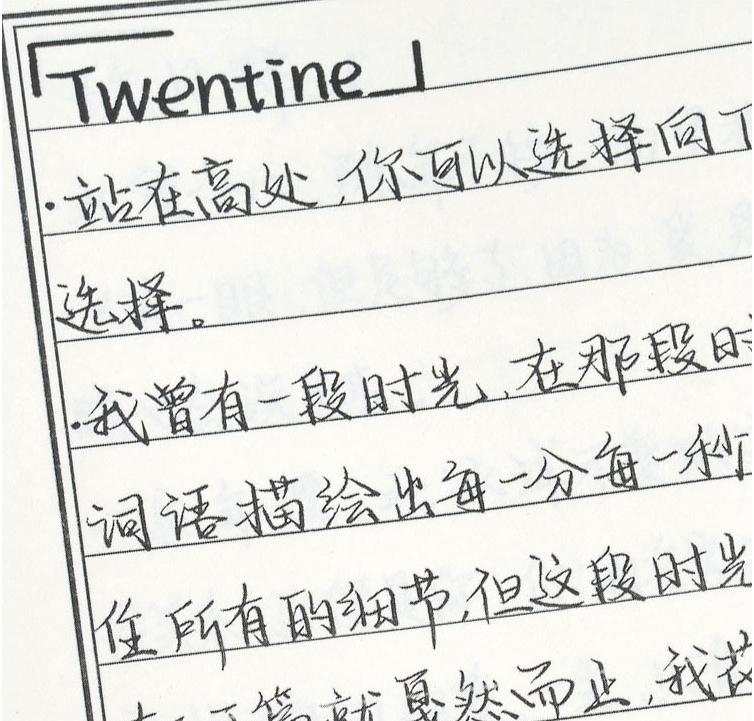 「Twentine」
·站在高处,你可以选择向下
选择。
·我曾有一段时光,在那段时
词语描绘出每一分每一秒
住所有的细节,但这段时光
就戛然而止,我花